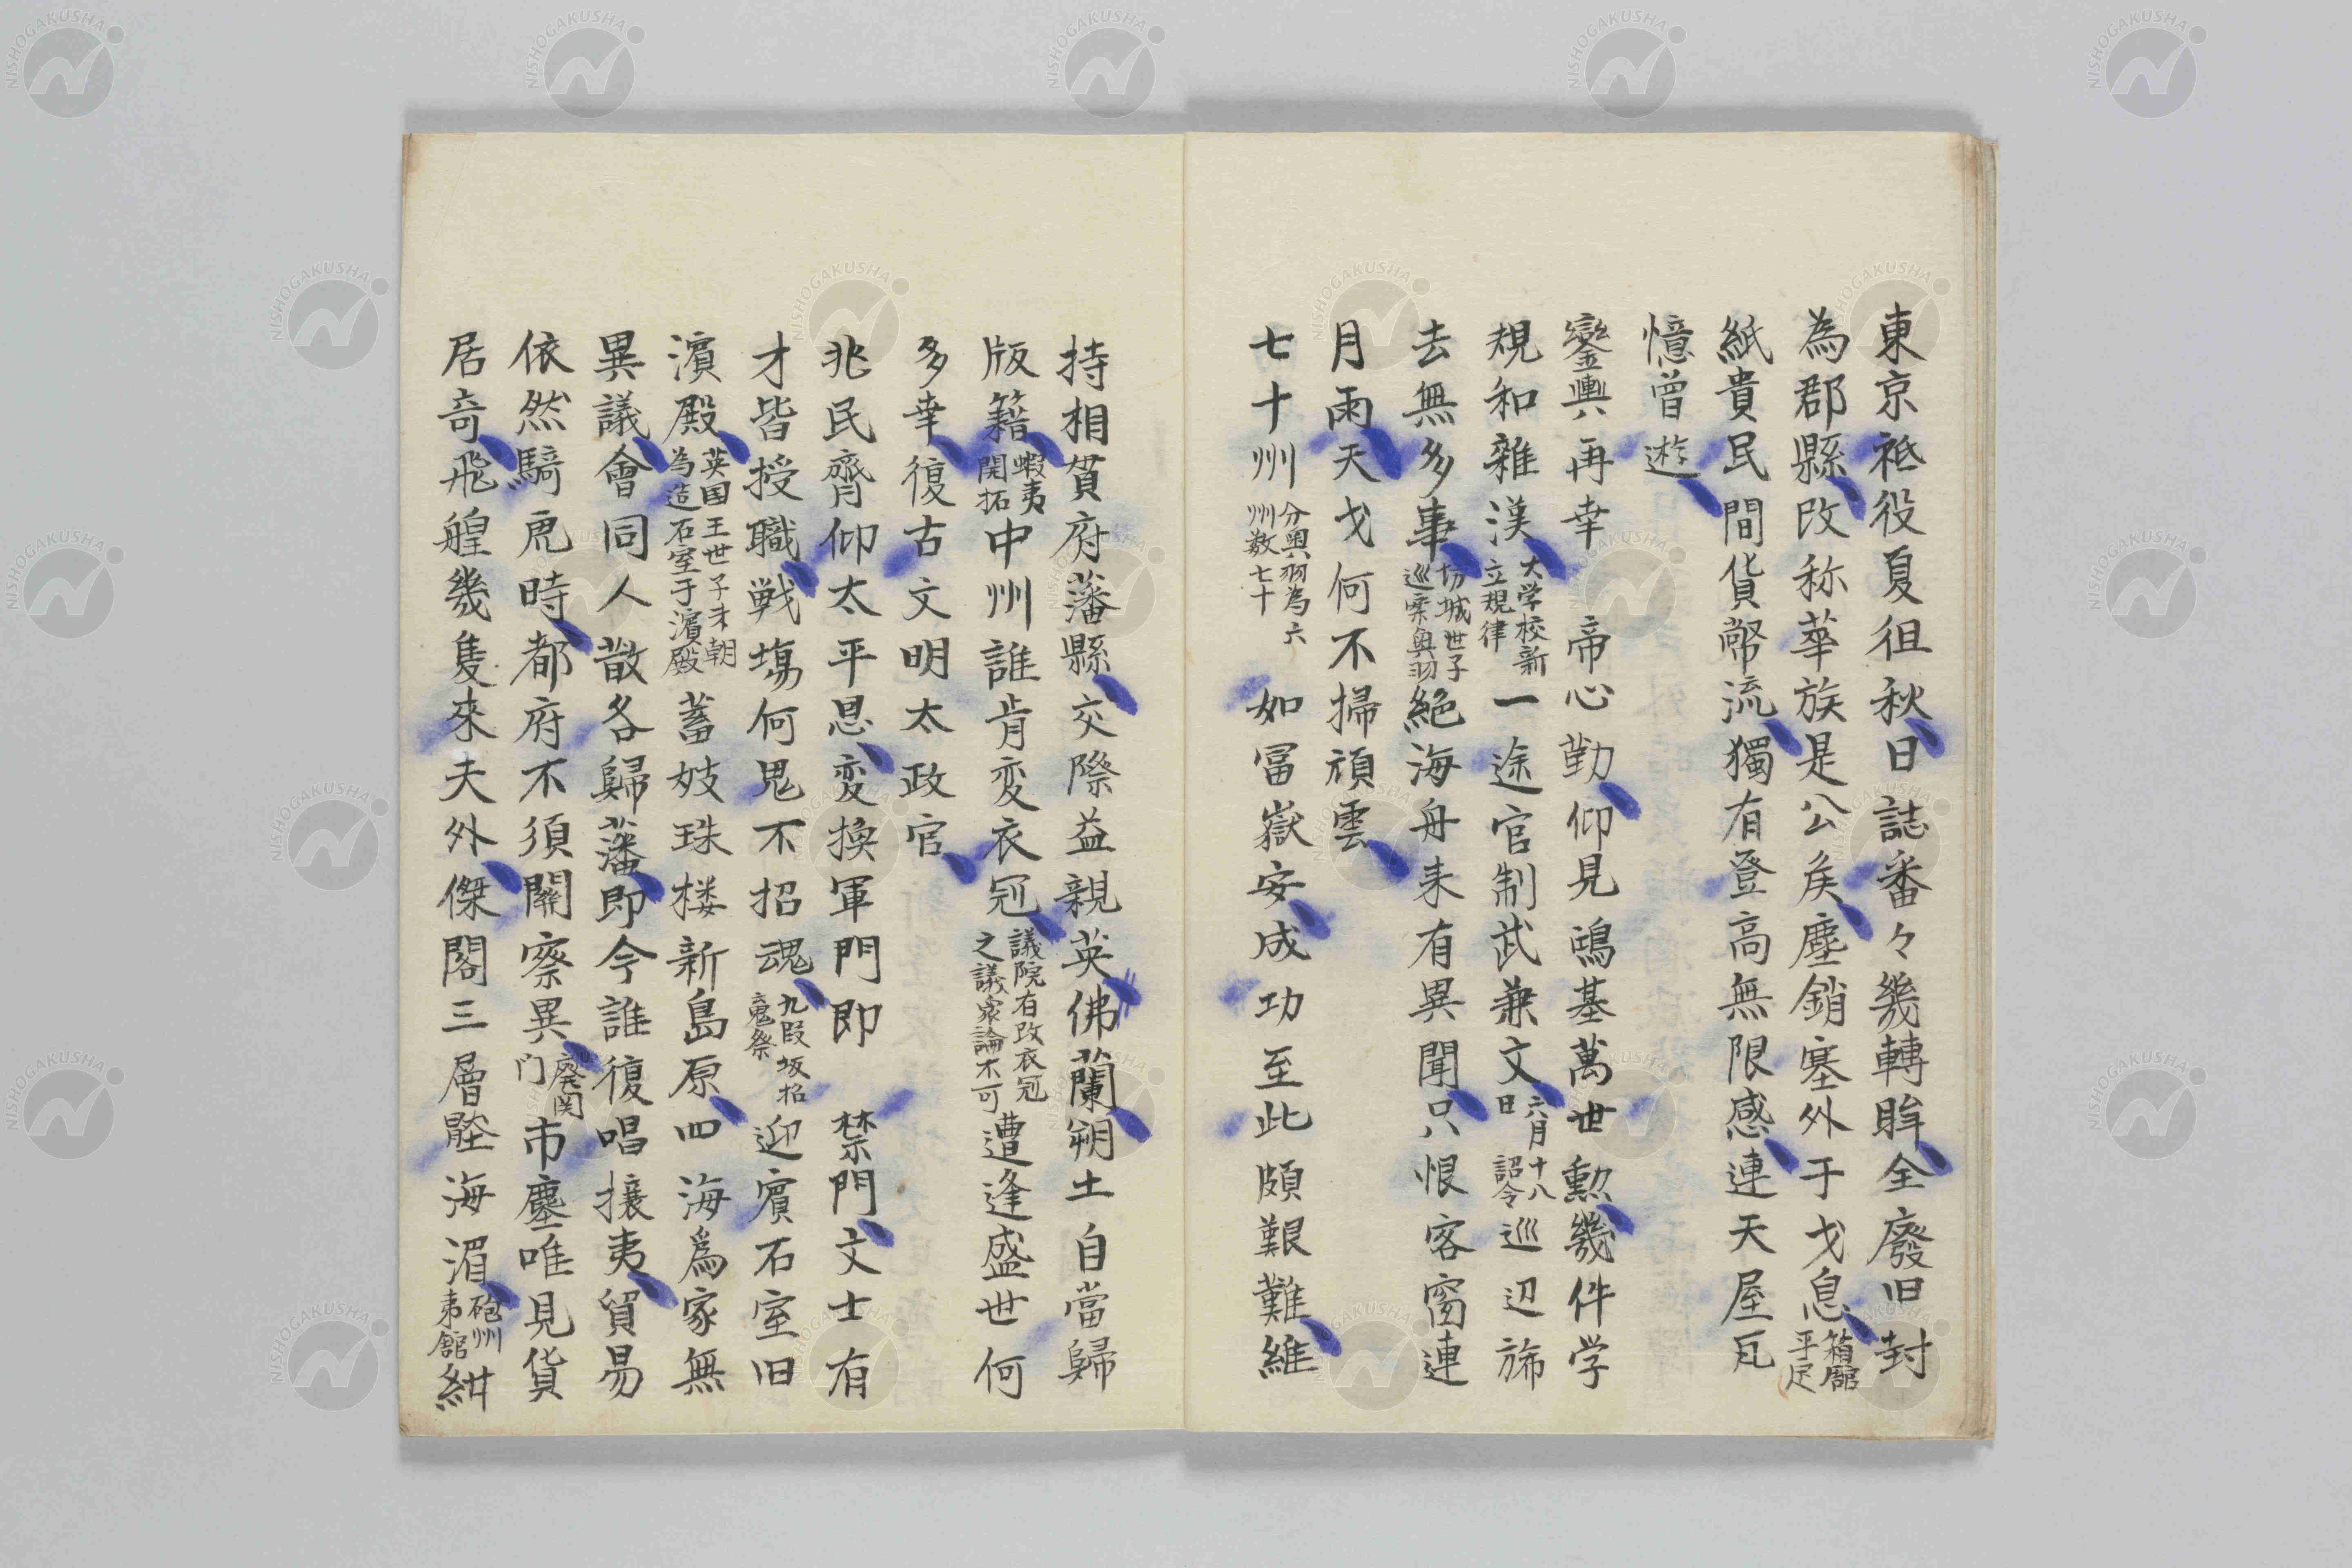 東京祗役夏徂秋日誌番々幾轉眸全廢旧封
為郡縣改称華族是公矦塵銷塞外干戈息箱舘平定
紙貴民間貨幣流獨有登高無限感連天屋瓦
憶曽遊
鑾輿再幸 帝心勤仰見鴻基萬世勲幾件学
規和雜漢大学校新立規律一途官制武兼文六月十八日詔令巡辺旆
去無多事切城世子巡察奥羽絶海舟来有異聞只恨客窗連
月雨天戈何不掃頑雲
七十州分奥羽為六州数七十如冨嶽安成功至此頗艱難維
持相貿府藩縣交際益親英佛蘭朔土自當歸
版籍蝦夷開拓中州誰肯変衣冠議院有改衣冠之議衆論不可遭逢盛世何
多幸復古文明太政官
兆民齊仰太平思変換軍門即 禁門文士有
才皆授職戦塲何鬼不招魂九段坂招魂祭迎賓石室旧
濵殿英国王世子来朝為造石室于濵殿蓄妓珠楼新島原四海為家無
異議會同人散各歸藩即今誰復唱攘夷貿易
依然騎虎時都府不須關察異廢関门市塵唯見貨
居奇飛艎幾隻來夫外傑閣三層壓海湄砲州夷舘紺